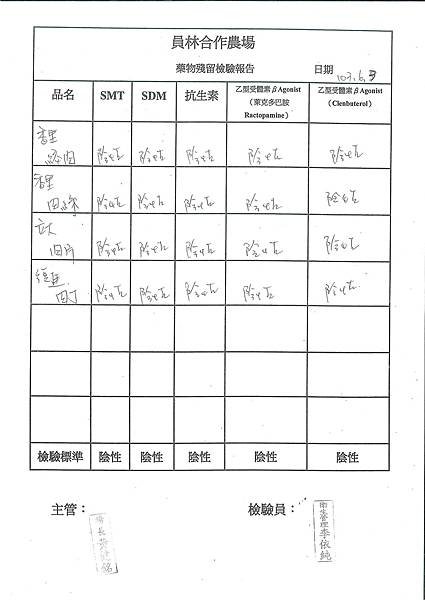 員林合作農場
藥物殘留檢驗報告
日期 103.6.3
品名 SMT SDM 抗生素 乙型受體素βAgonist（萊克多巴胺 Ractopamine） 乙型受體素βAgonist（Clenbuterol）
香里
陰性 陰性 陰性 陰性 陰性
香里
肉絲 陰性 陰性 陰性 陰性 陰性
立大
肉片 陰性 陰性 陰性 陰性 陰性
肉丁 陰性 陰性 陰性 陰性 陰性
檢驗標準 陰性 陰性 陰性 陰性 陰性
主管： 檢驗員：
衛生管理李依純